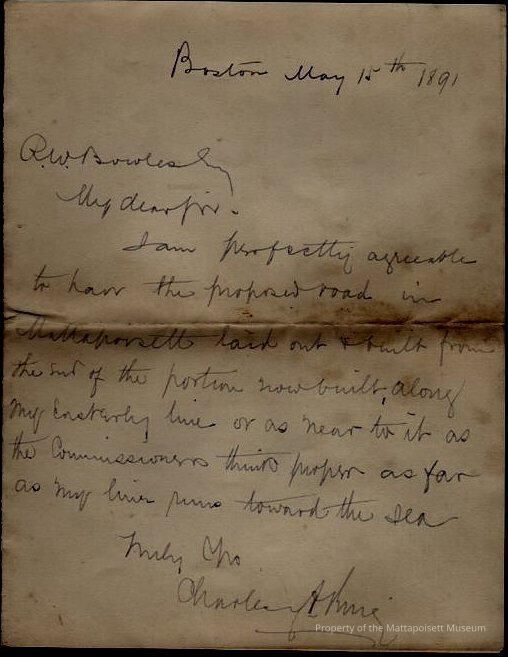 Boston May 15th 1891
R.W. Bowles Esq
My dear Sir.
I am perfectly agreeable
to have the proposed road in
Mattapoisett laid out & built from
the end of the portion now built, along
my Easterly line or as near to it as
the Commissioners think proper as far
as my line runs toward the sea
Truly Yrs
Charles A King
Property of the Mattapoisett Museum